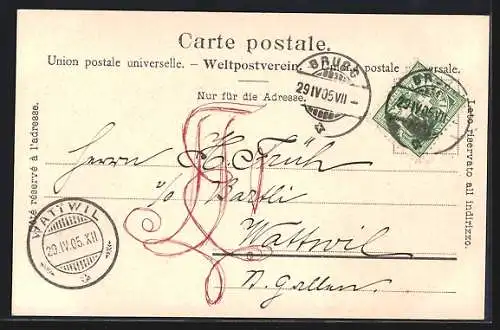 Carte postale.
Union postale universelle. – Weltpostverein. – Unione postale universale.
Nur für die Adresse.
Côté réservé à l'adresse.
Lato riservato all indirizzo.
BRUGG
29 IV 05 VII
BRUGG
29 IV 05 VII
Herrn H. Früh
c/o Bartli
Wattwil
St. Gallen.
WATTWIL
29. IV. 05. XII